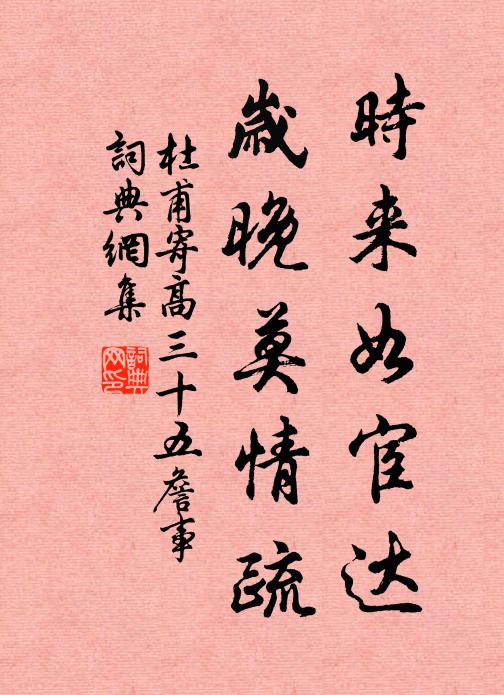 時来如宦达
歲晚莫情疏
杜甫寄高三十五詹事
詞典網集
詞典网印